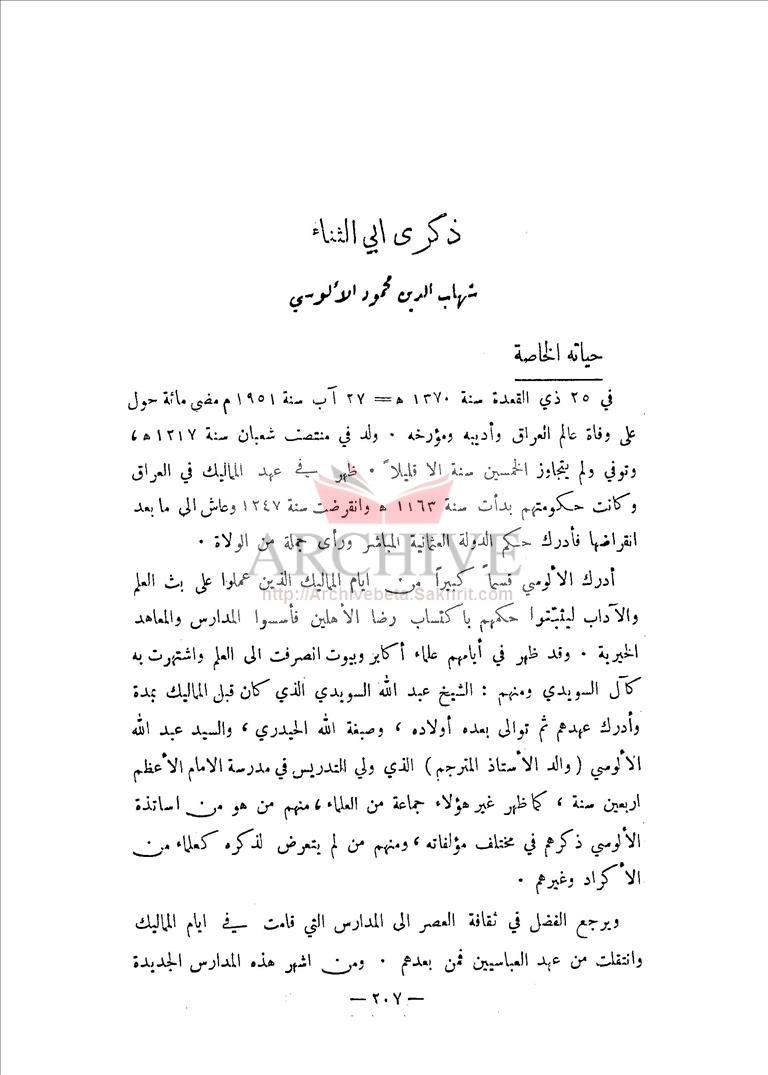 ذكرى ابي الثناء
شهاب الدين محمود الألوسي
حياته الخاصة
في ٢٥ ذي القعدة سنة ١٣٧٠ ه = ٢٧ آب سنة ١٩٥١ م مضى مائة حول
على وفاة عالم العراق وأديبه ومؤرخه . ولد في منتصف شعبان سنة ١٢١٧ ه ،
وتوفي ولم يتجاوز الخمسين سنة الا قليلاً . ظهر في عهد المماليك في العراق
وكانت حكومتهم بدأت سنة ١١٦٣ ه وانقرضت سنة ١٢٤٧ وعاش الى ما بعد
انقراضها فأدرك حكم الدولة العثمانية المباشر ورأى جملة من الولاة .
ARCHIVE
أدرك الألوسي قسماً كبيراً من ايام المماليك الذين عملوا على بث العلم
http://Archivebeta.Sakhrit.com
والآداب ليثبّتوا حكمهم باكتساب رضا الأهلين فأسسوا المدارس والمعاهد
الخيرية . وقد ظهر في أيامهم علماء أكابر وبيوت انصرفت الى العلم واشتهرت به
كآل السويدي ومنهم : الشيخ عبد الله السويدي الذي كان قبل المماليك بمدة
وأدرك عهدهم ثم توالى بعده أولاده ، وصبغة الله الحيدري ، والسيد عبد الله
الألوسي ( والد الأستاذ المترجم ) الذي ولي التدريس في مدرسة الامام الأعظم
اربعين سنة ، كما ظهر غير هؤلاء جماعة من العلماء ، منهم من هو من اساتذة
الألوسي ذكرهم في مختلف مؤلفاته ، ومنهم من لم يتعرض لذكره كعلماء من
الأكراد وغيرهم .
ويرجع الفضل في ثقافة العصر الى المدارس التي قامت في ايام المماليك
وانتقلت من عهد العباسيين فمن بعدهم . ومن اشهر هذه المدارس الجديدة
— ٢٠٧ —